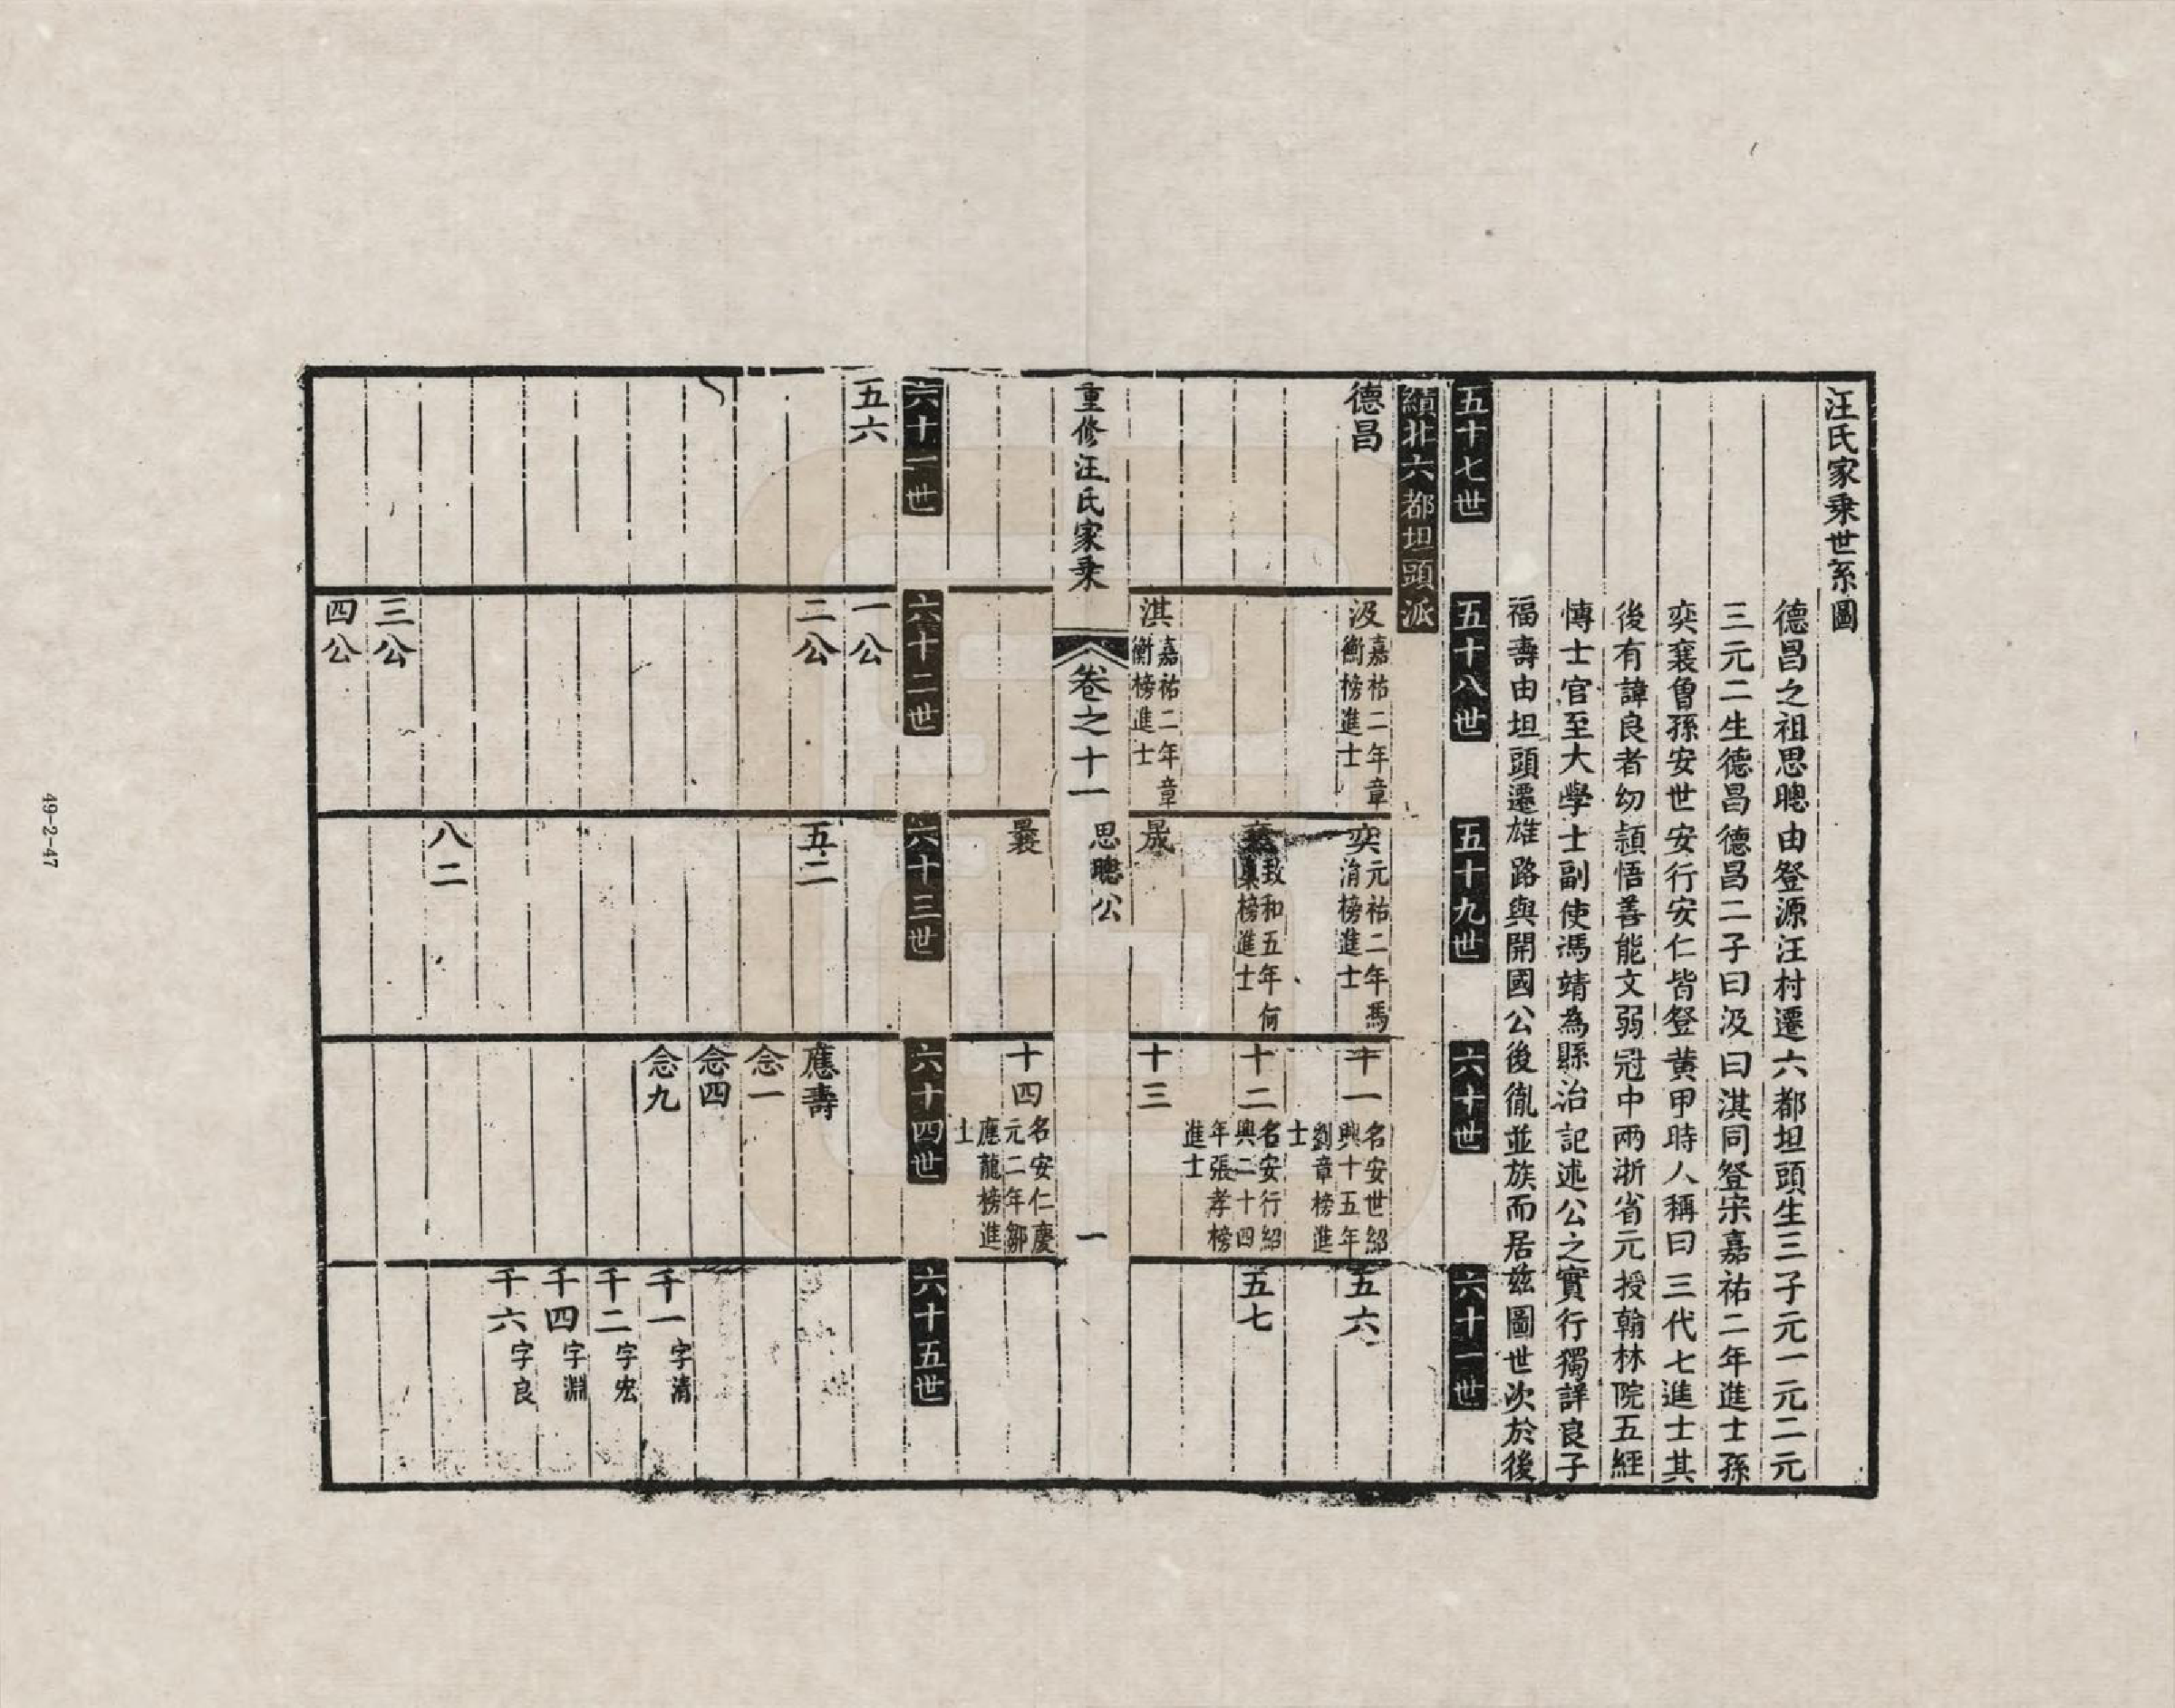 汪氏家乘世系圖
德昌之祖思聰由登源汪村遷六都坦頭生三子元一元二元
三元二生德昌德昌二子曰汲曰淇同登宋嘉祐二年進士孫
奕襄曾孫安世安行安仁皆登黄甲時人稱曰三代七進士其
後有諱良者幼頴悟善能文弱冠中兩浙省元授翰林院五經
愽士官至大學士副使馮靖為縣治記述公之實行獨詳良子
福壽由坦頭遷雄路與開國公後胤並族而居兹圖世次於後
五十七世
五十八世
五十九世
六十世
六十一世
績北六都坦頭派
德昌
汲 嘉祐二年章
衡榜進士
奕 元祐二年馬
涓榜進士
十一 名安世紹
興十五年
劉章榜進
士
五六
襄 政和五年何
㮚榜進士
十二 名安行紹
興二十四
年張孝榜
進士
五七
淇 嘉祐二年章
衡榜進士
晟
十三
重修汪氏家乘
卷之十一
思聰公
一
曩
十四 名安仁慶
元二年鄒
應龍榜進
士
六十一世
六十二世
六十三世
六十四世
六十五世
五六
一公
二公
五二
應壽
念一
念四
念九
千一 字清
千二 字宏
千四 字淵
千六 字良
八二
三公
四公
49-2-47